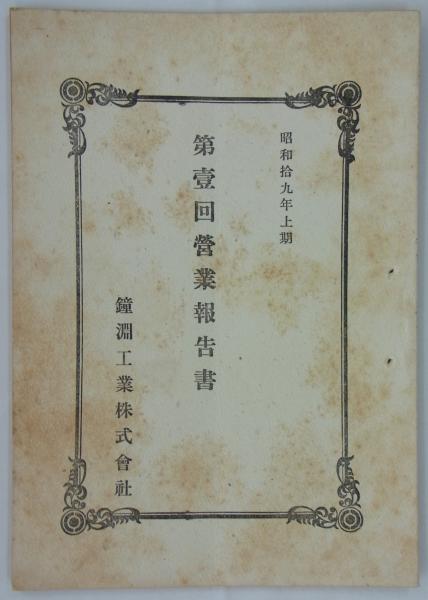 昭和拾九年上期
第壹回營業報告書
鐘淵工業株式會社